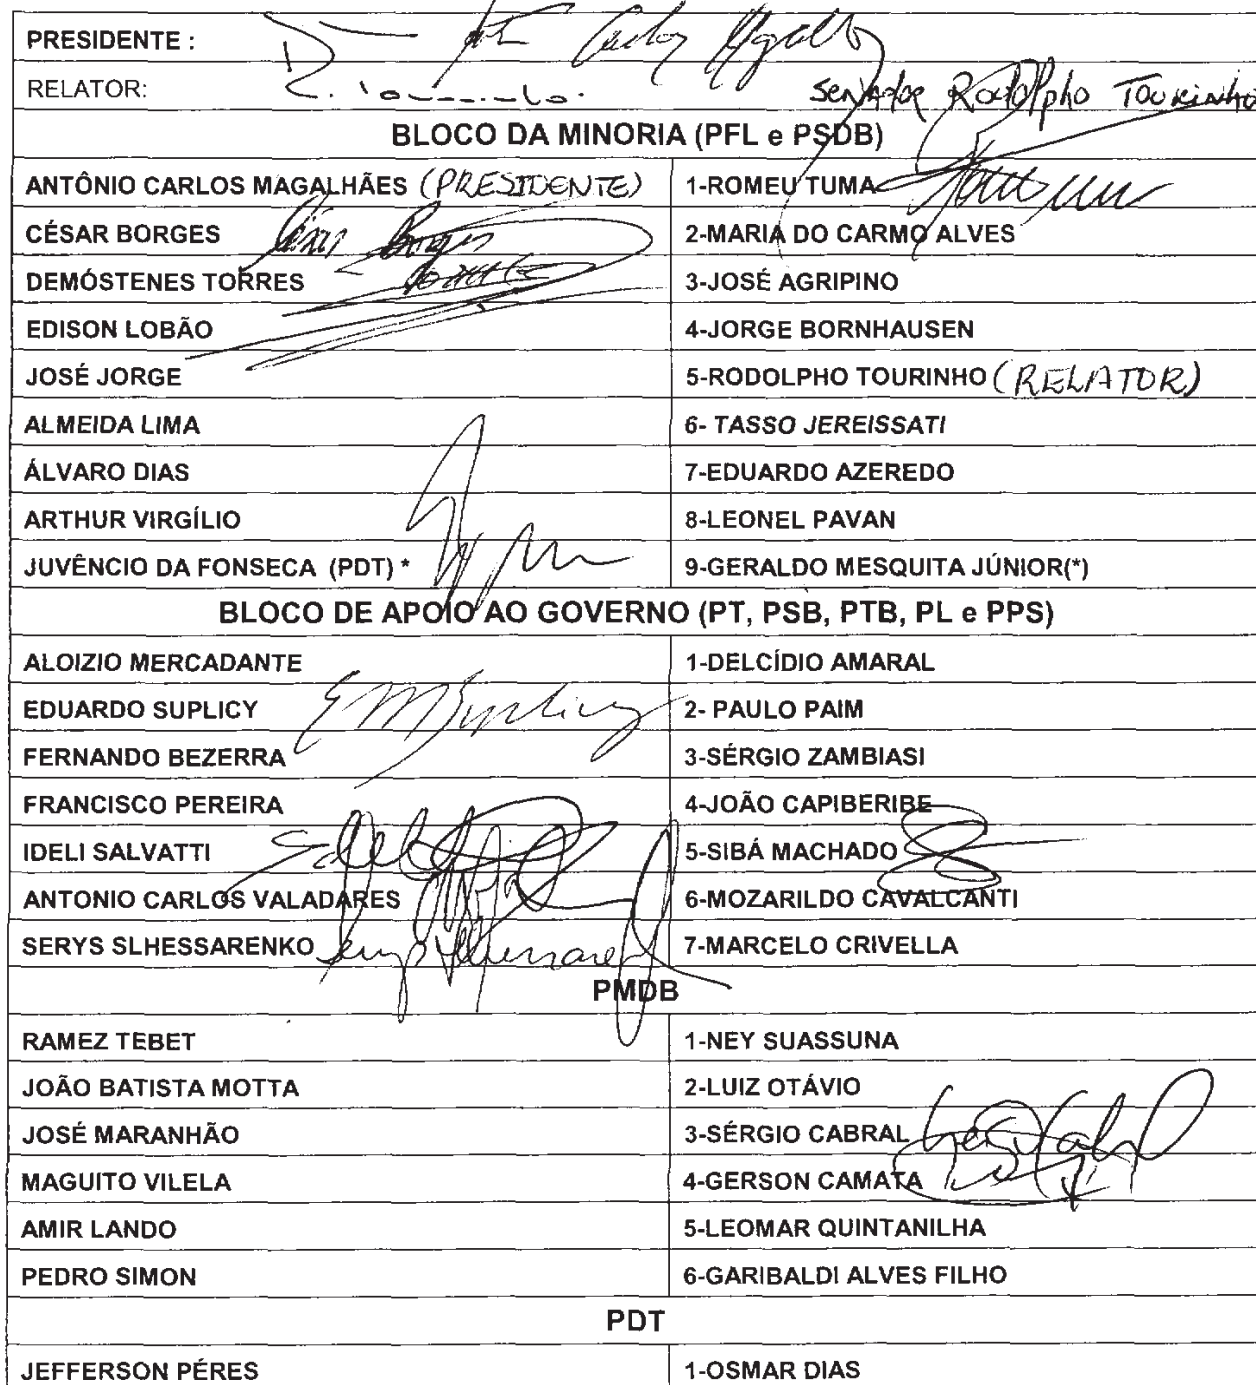 PRESIDENTE :
RELATOR: Senador Rodolpho Tourinho
BLOCO DA MINORIA (PFL e PSDB)
ANTÔNIO CARLOS MAGALHÃES (PRESIDENTE) 1-ROMEU TUMA
CÉSAR BORGES César Borges 2-MARIA DO CARMO ALVES
DEMÓSTENES TORRES 3-JOSÉ AGRIPINO
EDISON LOBÃO 4-JORGE BORNHAUSEN
JOSÉ JORGE 5-RODOLPHO TOURINHO (RELATOR)
ALMEIDA LIMA 6- TASSO JEREISSATI
ÁLVARO DIAS 7-EDUARDO AZEREDO
ARTHUR VIRGÍLIO 8-LEONEL PAVAN
JUVÊNCIO DA FONSECA (PDT) * 9-GERALDO MESQUITA JÚNIOR(*)
BLOCO DE APOIO AO GOVERNO (PT, PSB, PTB, PL e PPS)
ALOIZIO MERCADANTE 1-DELCÍDIO AMARAL
EDUARDO SUPLICY 2- PAULO PAIM
FERNANDO BEZERRA 3-SÉRGIO ZAMBIASI
FRANCISCO PEREIRA 4-JOÃO CAPIBERIBE
IDELI SALVATTI 5-SIBÁ MACHADO
ANTONIO CARLOS VALADARES 6-MOZARILDO CAVALCANTI
SERYS SLHESSARENKO 7-MARCELO CRIVELLA
PMDB
RAMEZ TEBET 1-NEY SUASSUNA
JOÃO BATISTA MOTTA 2-LUIZ OTÁVIO
JOSÉ MARANHÃO 3-SÉRGIO CABRAL
MAGUITO VILELA 4-GERSON CAMATA
AMIR LANDO 5-LEOMAR QUINTANILHA
PEDRO SIMON 6-GARIBALDI ALVES FILHO
PDT
JEFFERSON PÉRES 1-OSMAR DIAS